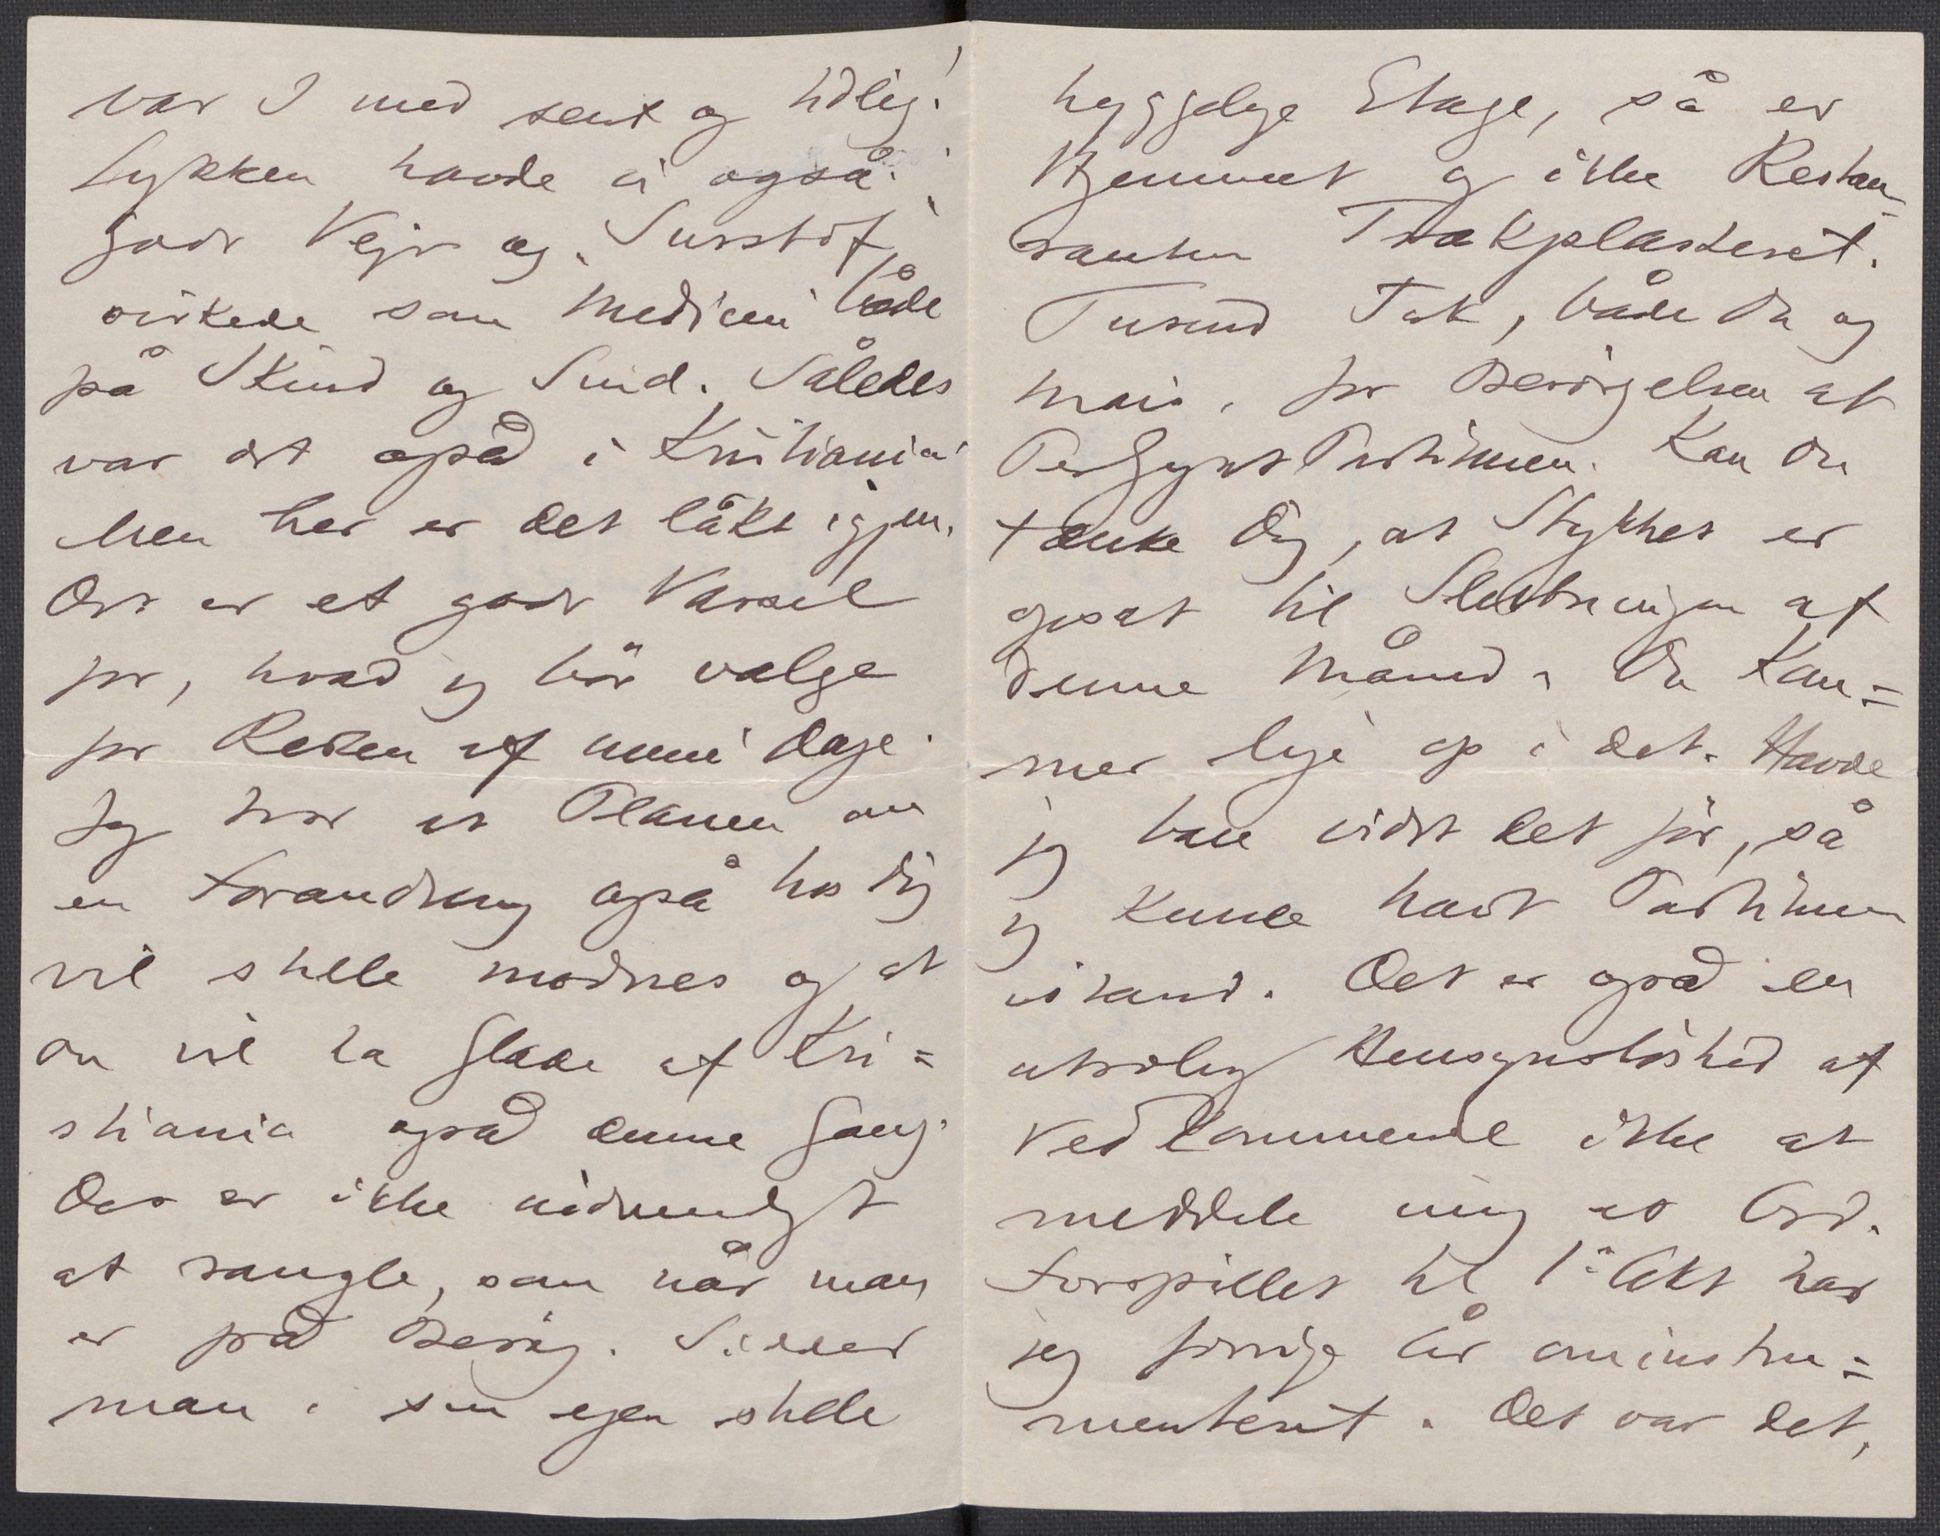 var I med sent og tidlig!
Lykken havde vi også:
godt Vejr og "Surstof"
virkede som Medicin både
på Skind og Sind. Således
var det også i Kristiania.
Men her er det låkt igjen.
Det er et godt Varsel
for, hvad jeg bör vælge
for Resten af mine Dage.
Jeg tror at Planen om
en Forandring også hos Dig
vil stille modnes og at
Du vil ha Glæde af Kri=
stiania også denne Gang.
Det er ikke nödvendigt
at rangle, som når man
er på Besög. Sidder
man i sin egen stille
hyggelige Etage, så er
Hjemmet og ikke Restau=
ranten Trækplasteret.
Tusend Tak, både Du og
Marie, for Besörgelsen af
Peer Gynt Partituren. Kan Du
tænke Dig, at Stykket er
opsat til Slutningen af
denne Måned. Du kom=
mer lige op i det. Havde
jeg bare vidst det för, så
jeg kunde havt Partituren
istand. Det er også en
utrolig Hensynslöshed af
Vedkommende ikke at
meddele mig et Ord.
Forspillet til 1ste Akt har
jeg forrige År ominstru=
menteret. Det var det,